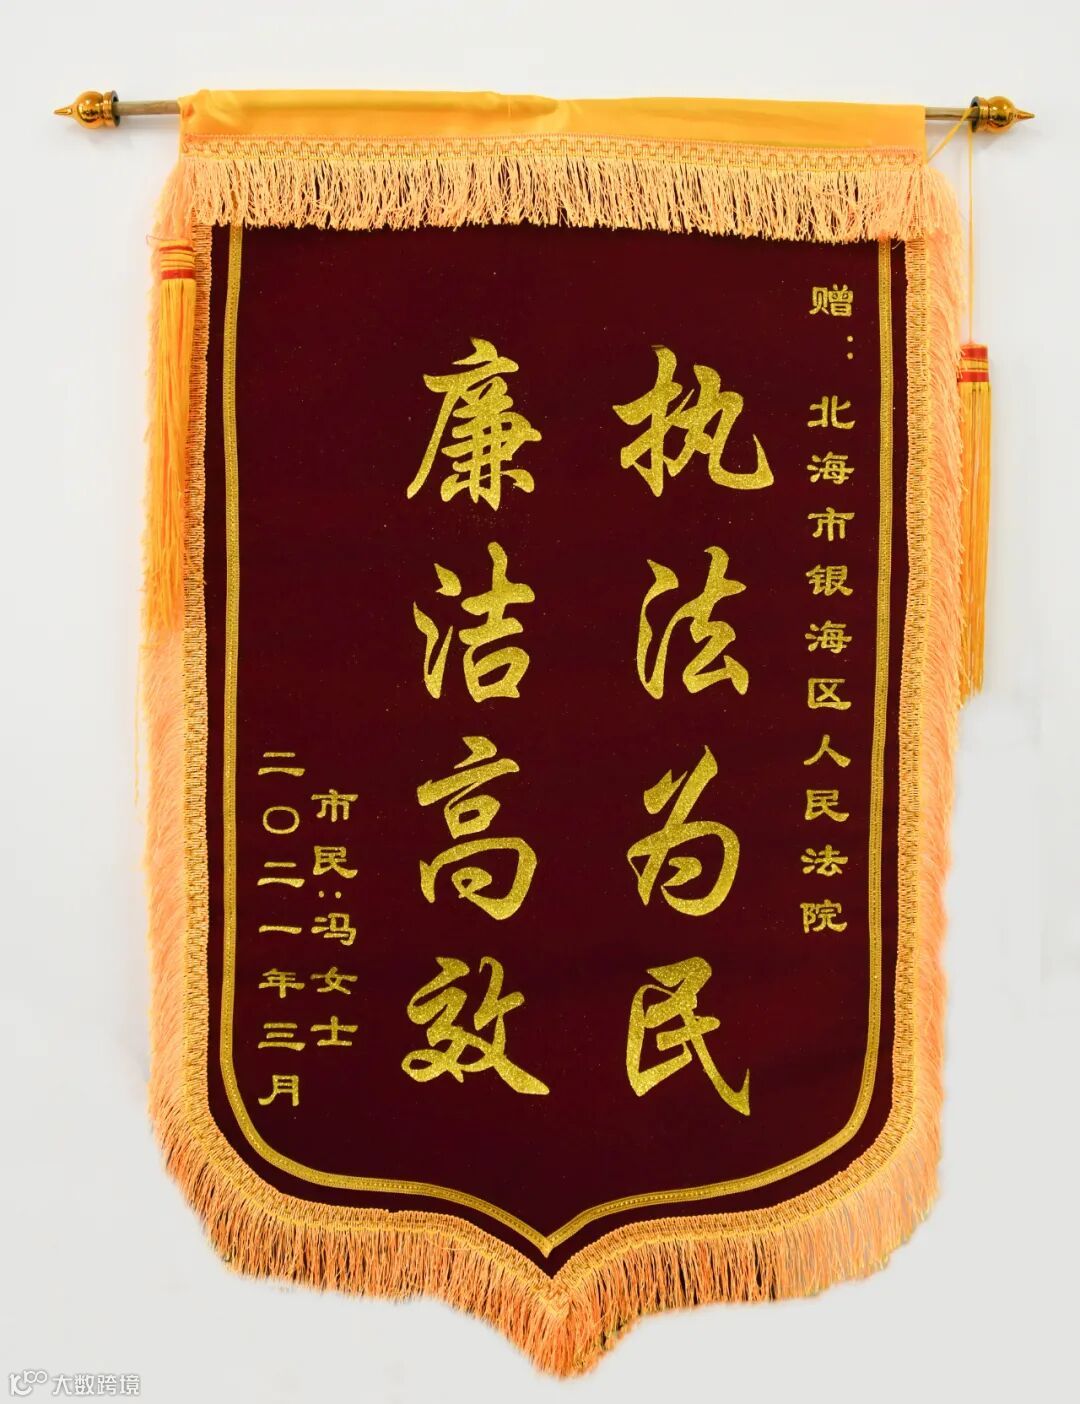 赠：北海市银海区人民法院
执法为民
廉洁高效
市民：冯女士
二〇二一年三月
大数跨境